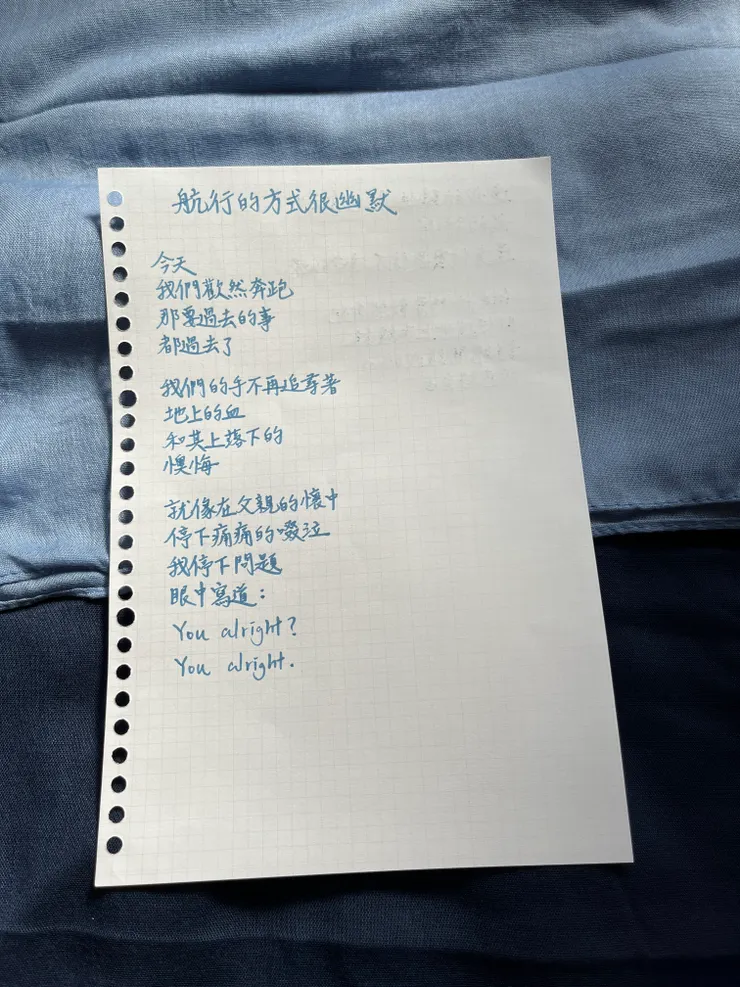 航行的方式很幽默
今天
我們歡然奔跑
那要過去的事
都過去了
我們的手不再追尋著
地上的血
和其上落下的
懊悔
就像在父親的懷中
停下痛痛的啜泣
我停下問題
眼中寫道：
You alright?
You alright.